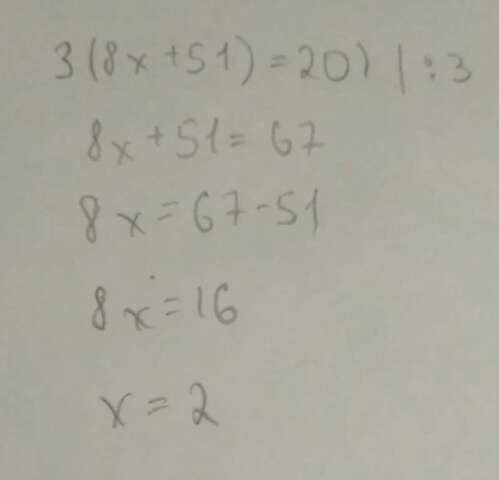 3(8x+51)=201 |:3
8x+51=67
8x=67-51
8x=16
x=2